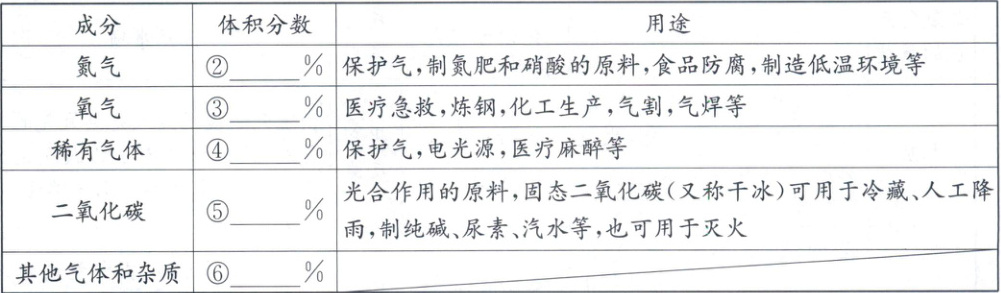 成分 体积分数 用途
氮气 ②_____% 保护气,制氮肥和硝酸的原料,食品防腐,制造低温环境等
氧气 ③_____% 医疗急救,炼钢,化工生产,气割,气焊等
稀有气体 ④_____% 保护气,电光源,医疗麻醉等
二氧化碳 ⑤_____% 光合作用的原料,固态二氧化碳(又称干冰)可用于冷藏、人工降
雨,制纯碱、尿素、汽水等,也可用于灭火
其他气体和杂质 ⑥_____%